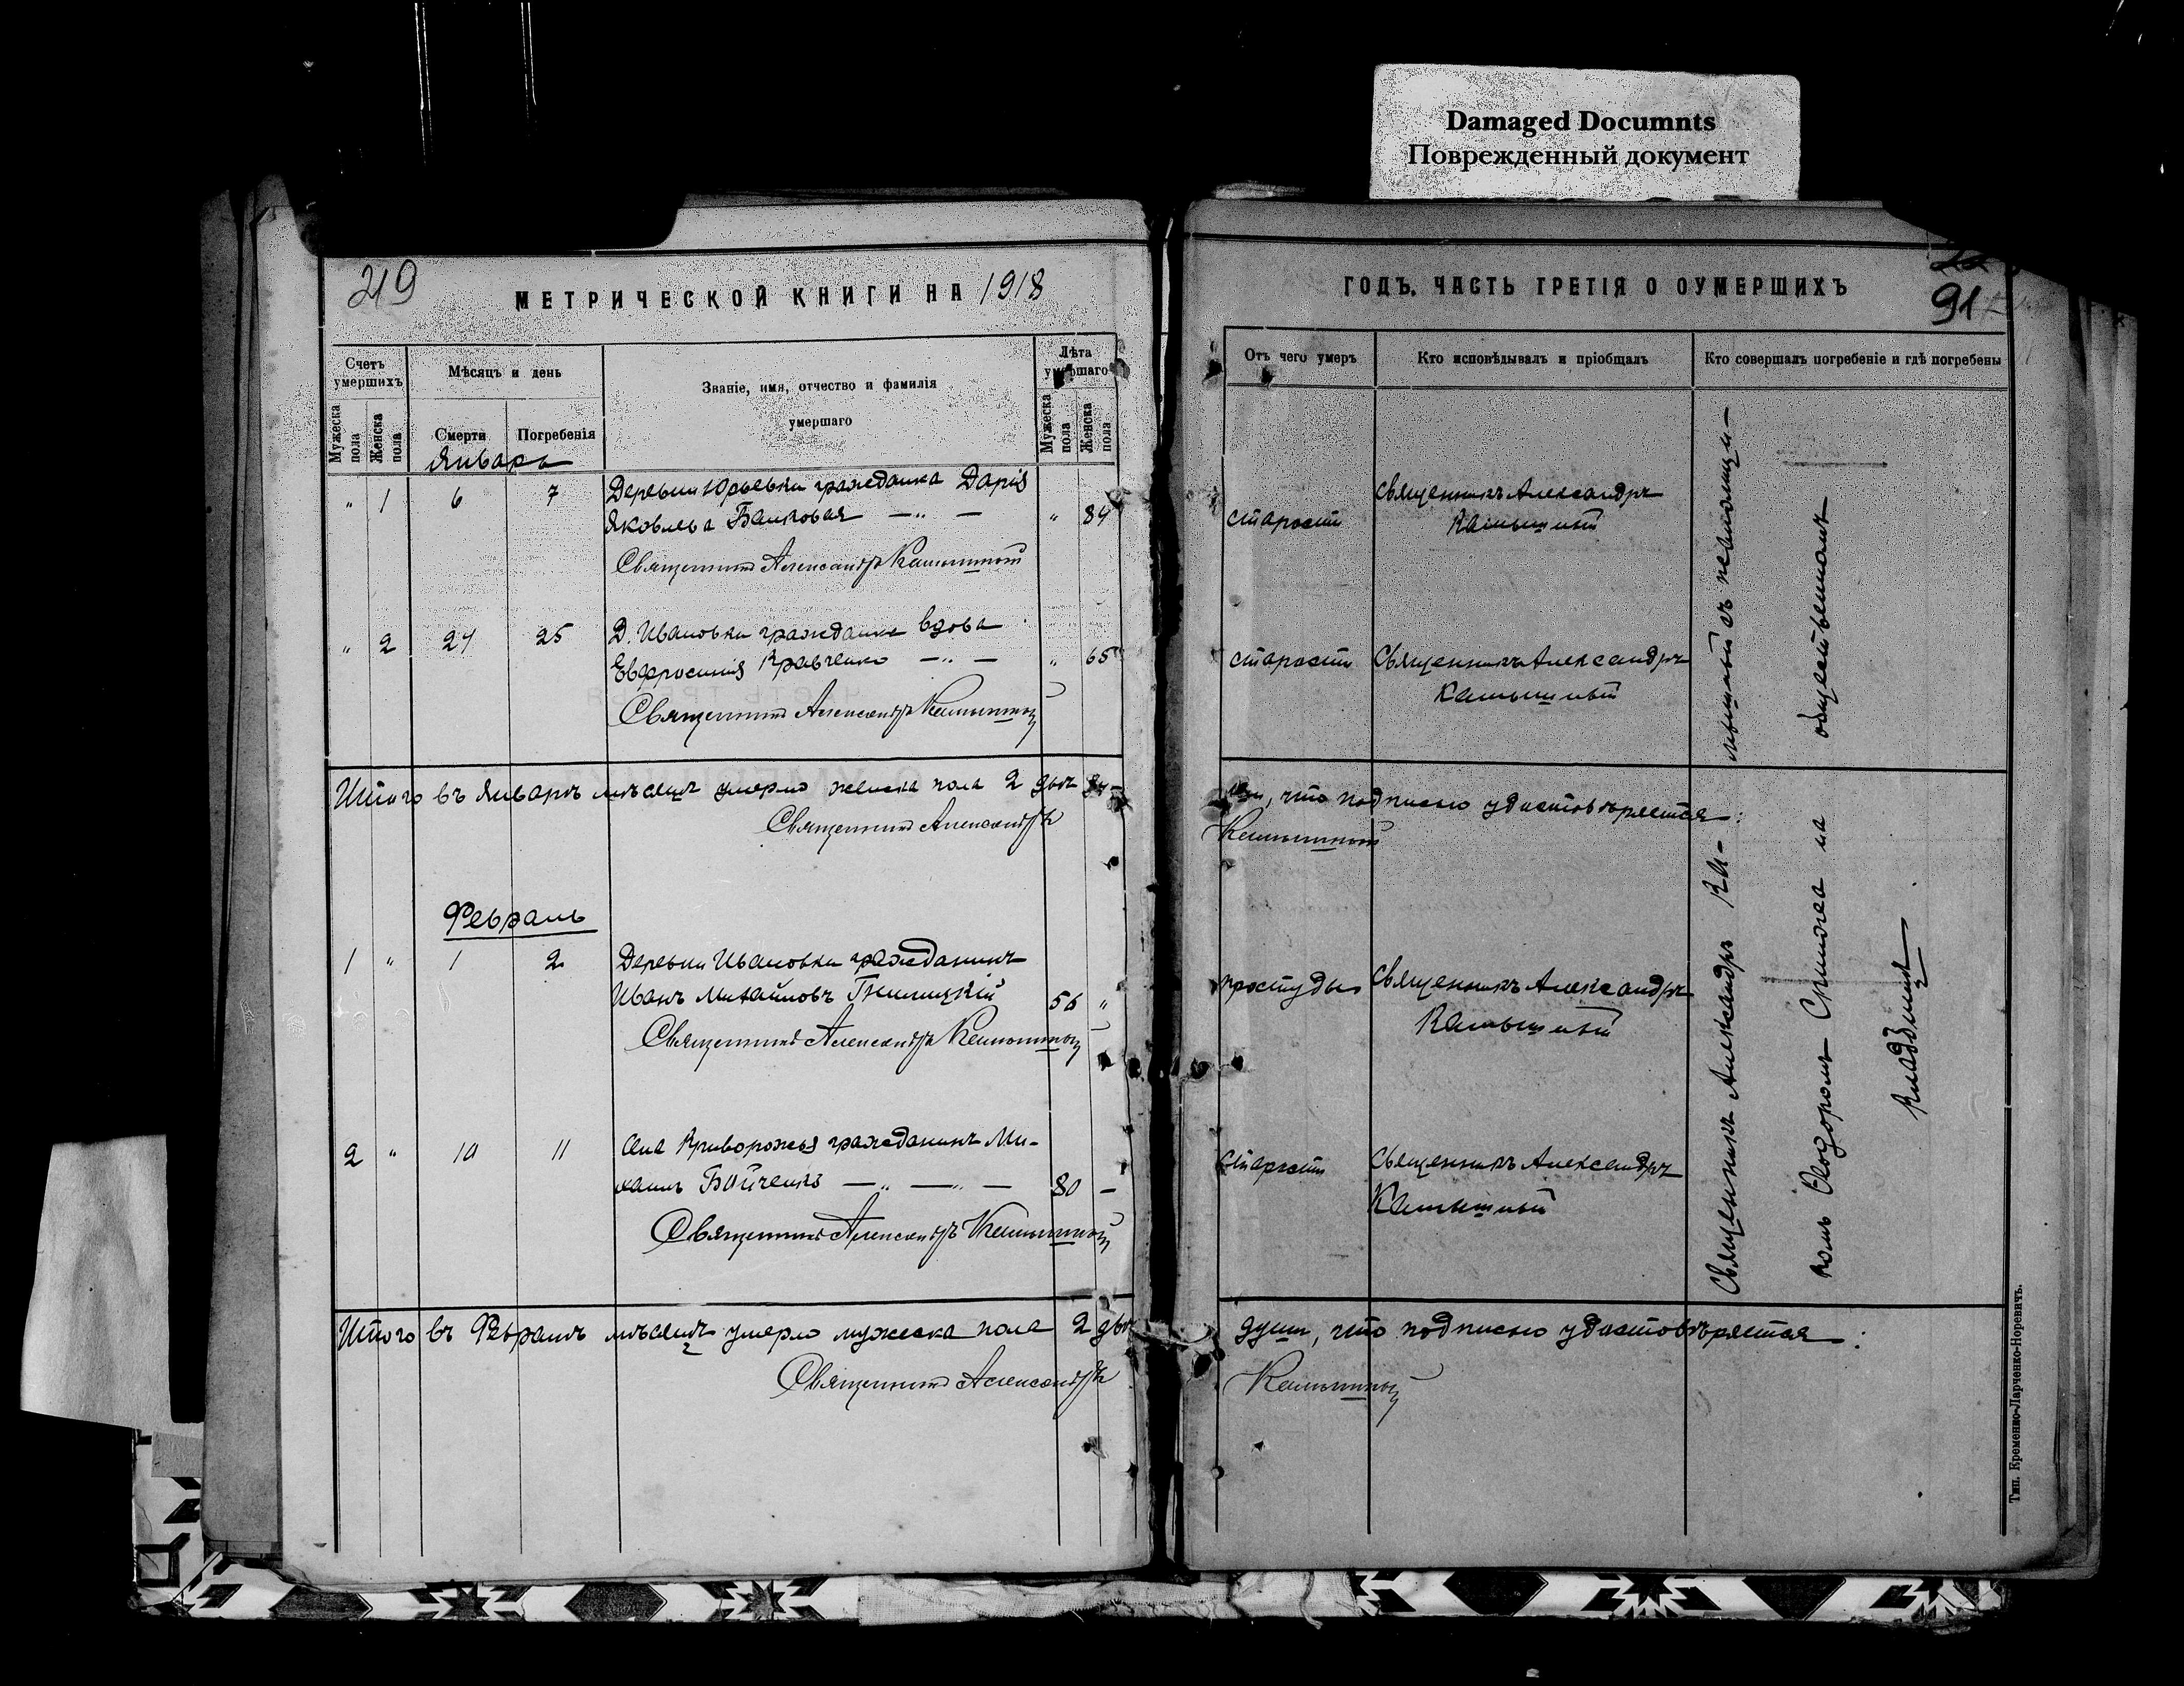 Damaged Documnts
Поврежденный документ
МЕТРИЧЕСКОЙ КНИГИ НА 1918
ГОДЪ. ЧАСТЬ ТРЕТІЯ О ОУМЕРШИХЪ
91
Счетъ умершихъ
Мужеска пола
Женска пола
Мѣсяцъ и день
Смерти
Погребенія
Званіе, имя, отчество и фамилія
умершаго
Лѣта умершаго
Мужеска пола
Женска пола
Отъ чего умеръ
Кто исповѣдывалъ и пріобщалъ
Кто совершалъ погребеніе и гдѣ погребены
Январь
" 1 6 7 Деревни Юрьевки гражданка Дарія
Яковлева —"— " 84
Священникъ Александръ Камышный
старости
Священникъ Александръ
Камышный
" 2 24 25 Д. Ивановки гражданка вдова
Евфросинія Кравченко —"— " 65
Священникъ Александръ Камышный
старости
Священникъ Александръ
Камышный
Итого въ Январѣ мѣсяцѣ умерло женска пола 2 двѣ
что подписью удостовѣряется:
Священникъ Александръ
Камышный
Февраль
1 " 1 2 Деревни Ивановки гражданинъ
Иванъ Михайловъ 56 "
Священникъ Александръ Камышный
простуды
Священникъ Александръ
Камышный
2 " 10 11 Села Криворожья гражданинъ Ми-
хаилъ Бойченко —"—"— 80 —
Священникъ Александръ Камышный
старости
Священникъ Александръ
Камышный
Священникъ Александръ Ка-
мышный съ псаломщи-
комъ Ѳеодоромъ на
общественномъ
кладбищѣ
Итого въ Февралѣ мѣсяцѣ умерло мужеска пола 2 двѣ
души, что подписью удостовѣряется:
Священникъ Александръ
Камышный
Тип. Кременно-Ларченко-Норевичъ.